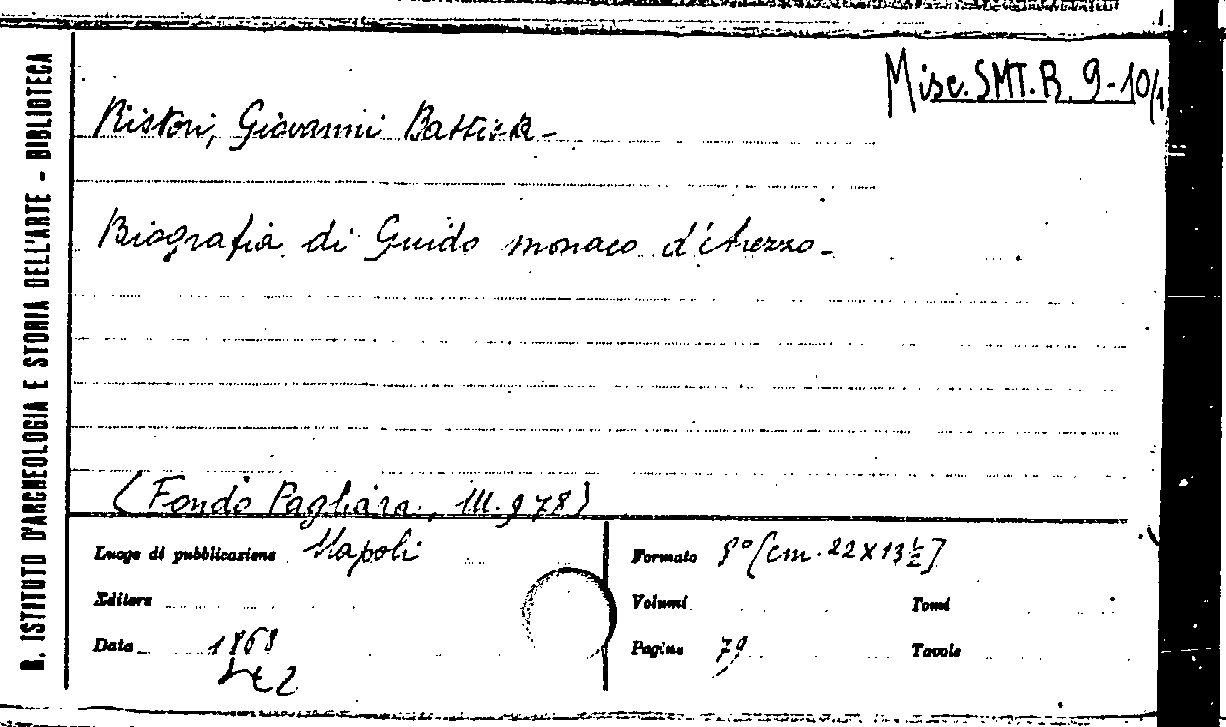 R. ISTITUTO D'ARCHEOLOGIA E STORIA DELL'ARTE - BIBLIOTECA
Misc. SMT. R. 9-10/1
Ristori, Giovanni Battista-
Biografia di Guido monaco d'Arezzo-
(Fondo Pagliara, M. 978)
Luogo di pubblicazione Napoli
Editore
Data 1868
Formato 8° [cm. 22 x 13½]
Volumi Tomi
Pagine 79 Tavole